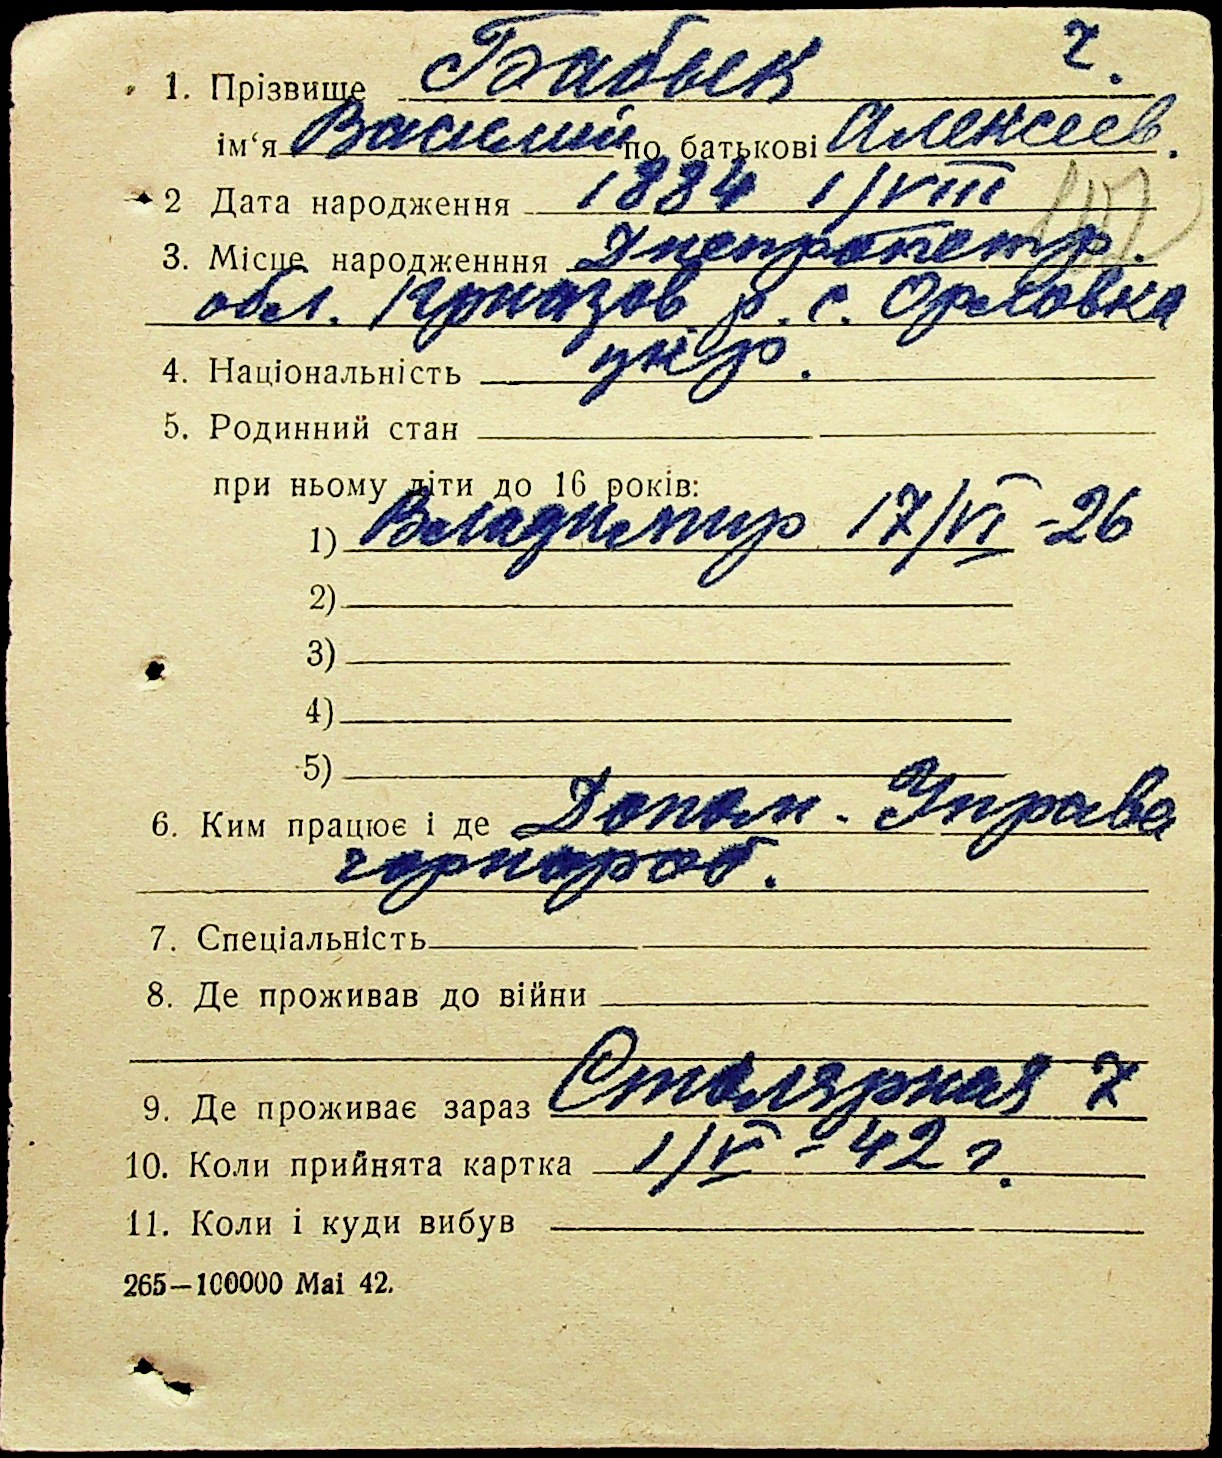 ч.
1. Прізвище Бабык
ім‘я Василий по батькові Алексеев.
2 Дата народження 1884 1/VIII
3. Місце народженння Днепропетр.
обл. р. с. Орловка
4. Національність укр.
5. Родинний стан
при ньому діти до 16 років:
1) Владимир 17/VI - 26
2)
3)
4)
5)
6. Ким працює і де Допом. Управа
чорнороб.
7. Спеціальність
8. Де проживав до війни
9. Де проживає зараз Столярная 7
10. Коли прийнята картка 1/V - 42 г.
11. Коли і куди вибув
265—100000 Mai 42.